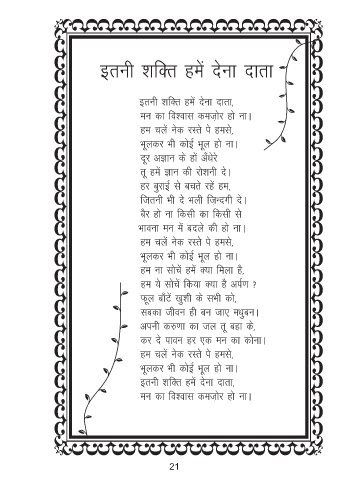 इतनी शक्ति हमें देना दाता
इतनी शक्ति हमें देना दाता,
मन का विश्वास कमज़ोर हो ना।
हम चलें नेक रस्ते पे हमसे,
भूलकर भी कोई भूल हो ना।
दूर अज्ञान के हों अँधेरे
तू हमें ज्ञान की रोशनी दे।
हर बुराई से बचते रहें हम,
जितनी भी दे भली ज़िन्दगी दे।
बैर हो ना किसी का किसी से
भावना मन में बदले की हो ना।
हम चलें नेक रस्ते पे हमसे,
भूलकर भी कोई भूल हो ना।
हम ना सोचें हमें क्या मिला है,
हम ये सोचें किया क्या है अर्पण ?
फूल बाँटें खुशी के सभी को,
सबका जीवन ही बन जाए मधुबन।
अपनी करुणा का जल तू बहा के,
कर दे पावन हर एक मन का कोना।
हम चलें नेक रस्ते पे हमसे,
भूलकर भी कोई भूल हो ना।
इतनी शक्ति हमें देना दाता,
मन का विश्वास कमज़ोर हो ना।
21